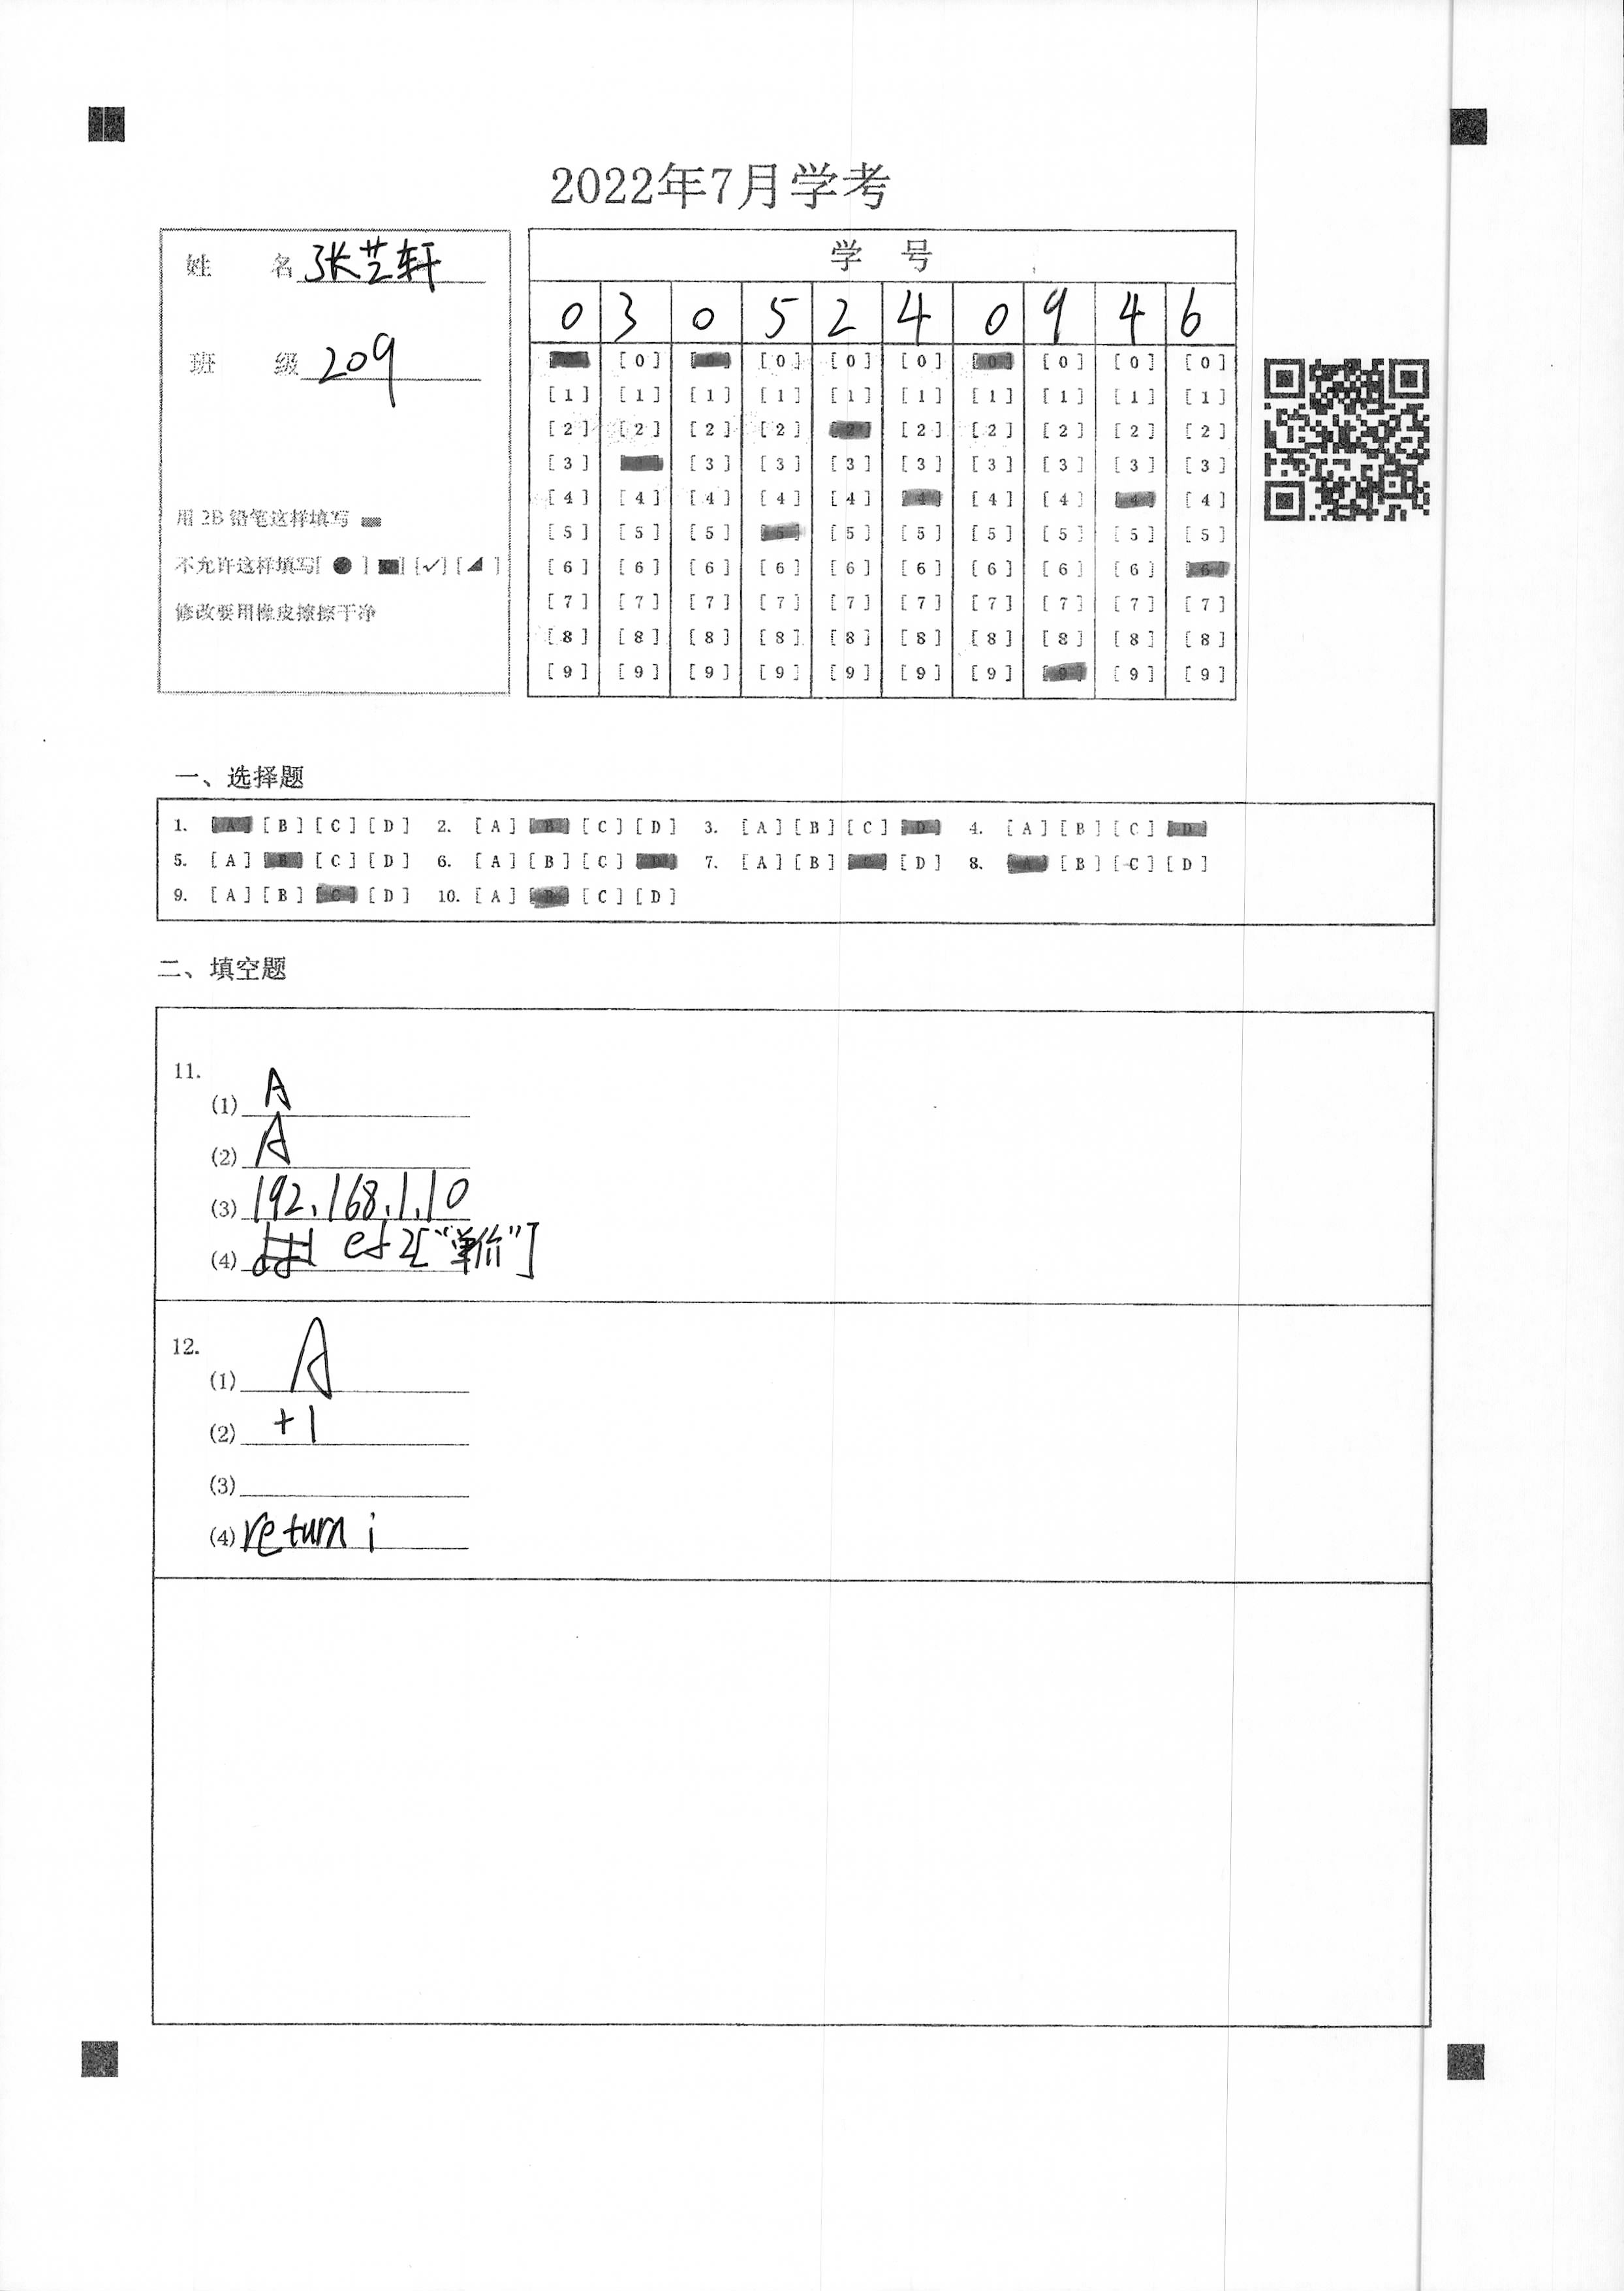 2022年7月学考
姓 名 张芝轩
班 级 209
用2B铅笔这样填写
不允许这样填写[ ● ] [■] [✓] [◢ ]
修改要用橡皮擦擦干净
学 号
0 3 0 5 2 4 0 9 4 6
[0] [0] [0] [0] [0] [0] [0] [0]
[1] [1] [1] [1] [1] [1] [1] [1] [1] [1]
[2] [2] [2] [2] [2] [2] [2] [2] [2] [2]
[3] [3] [3] [3] [3] [3] [3] [3] [3]
[4] [4] [4] [4] [4] [4] [4] [4] [4] [4]
[5] [5] [5] [5] [5] [5] [5] [5] [5] [5]
[6] [6] [6] [6] [6] [6] [6] [6] [6] [6]
[7] [7] [7] [7] [7] [7] [7] [7] [7] [7]
[8] [8] [8] [8] [8] [8] [8] [8] [8] [8]
[9] [9] [9] [9] [9] [9] [9] [9] [9] [9]
一、选择题
1. [A] [B] [C] [D] 2. [A] [B] [C] [D] 3. [A] [B] [C] [D] 4. [A] [B] [C] [D]
5. [A] [B] [C] [D] 6. [A] [B] [C] [D] 7. [A] [B] [C] [D] 8. [A] [B] [C] [D]
9. [A] [B] [C] [D] 10. [A] [B] [C] [D]
二、填空题
11.
(1) A
(2) A
(3) 192.168.1.10
(4) ef2["单价"]
12.
(1) A
(2) +1
(3)
(4) return i